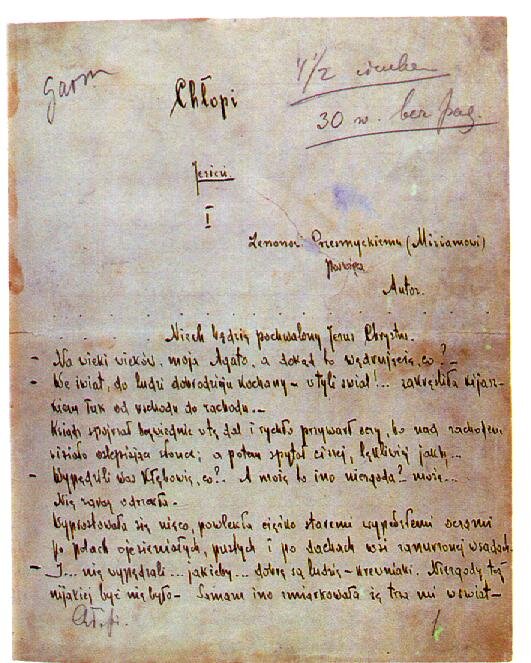 Garm
1 1/2
30 w. bez pag.
Chłopi
Jesień.
I
Zenonowi Przesmyckiemu (Miriamowi)
poświęca
Autor.
Niech będzie pochwalony Jezus Chrystus.
– Na wieki wieków, moja Agato, a dokąd to wędrujecie, co? –
– We świat, do ludzi dobrodzieju kochany – w tyli świat!... zakreśliła kijasz-
kiem łuk od wschodu do zachodu. –
Ksiądz spojrzał bezwiednie w tę dal i rychło przywarł oczy, bo nad zachodem
wisiało oślepiające słońce; a potem spytał ciszej, lękliwiej jakby...
– Wypędzili was Kłębowie, co?.. A może to ino niezgoda?.. może...
Nie zaraz odrzekła.
Wyprostowała się nieco, powlekła ciężko staremi wypełzłemi oczami
po polach ojesieniałych, pustych i po dachach wsi zanurzonej w sadach.
– I... nie wypędzali... jakżeby... dobre są ludzie – krewniaki. Niezgody też
nijakiej być nie było – Samam ino zmiarkowała że trza mi w świat –